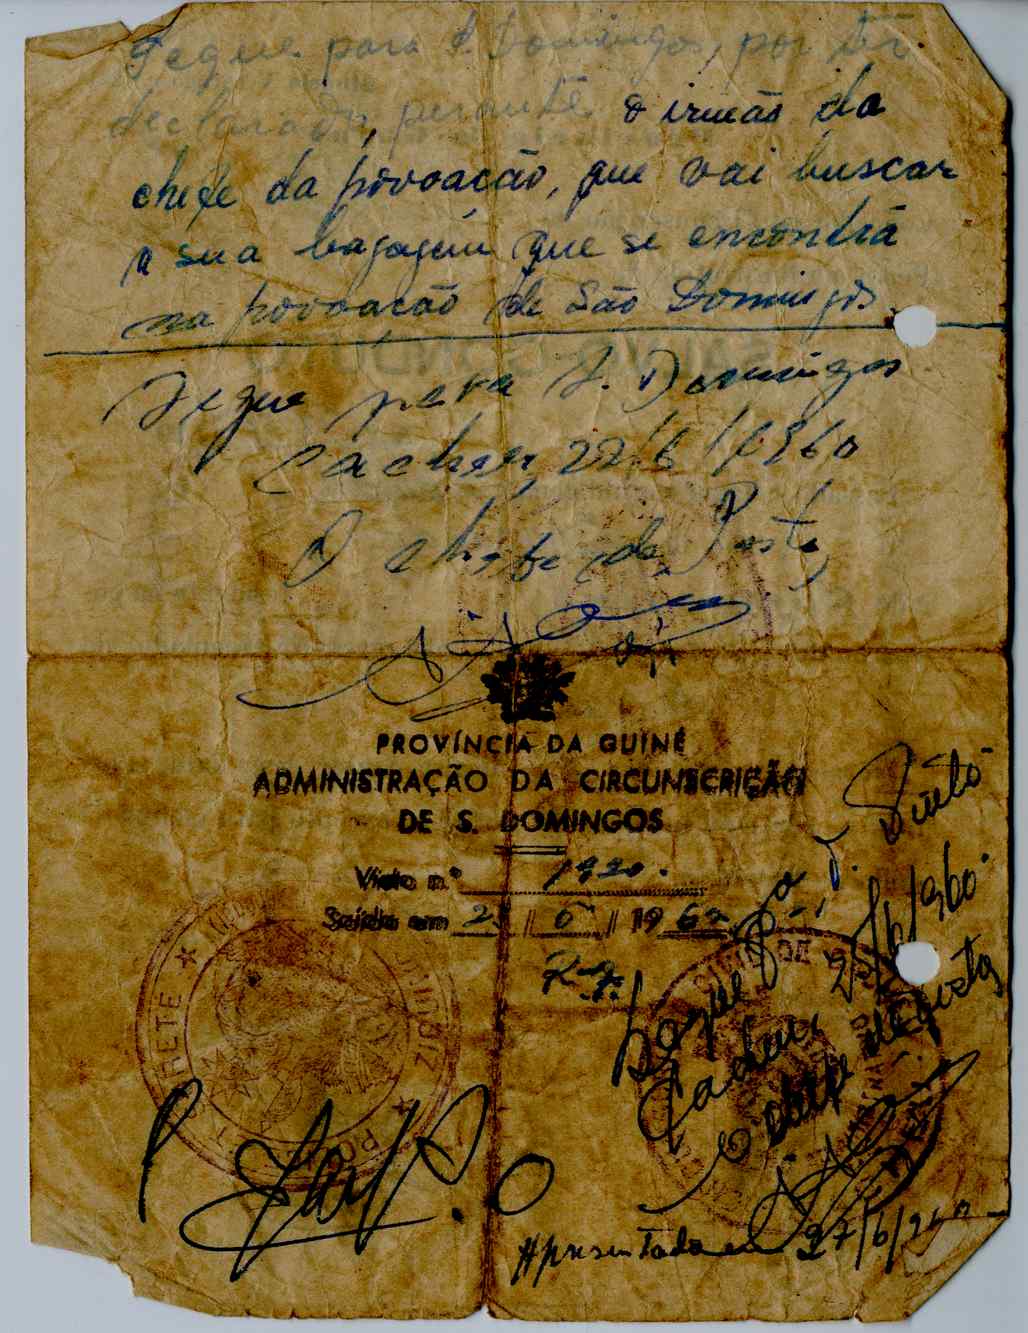 Segue para S. Domingos, por ter
declarado, perante o irmão do
chefe da povoação, que vai buscar
a sua bagagem que se encontra
na povoação de São Domingos.
Segue para S. Domingos
Cacheu, 22/6/1960
O chefe de Posto,
PROVÍNCIA DA GUINÉ
ADMINISTRAÇÃO DA CIRCUNSCRIÇÃO
DE S. DOMINGOS
Visto n.º 1920.
Saída em 2 / 6 / 1960
Segue para T. Pinto
Cacheu, 2 /6/960.
O chefe de posto
Apresentado em 27/6/960